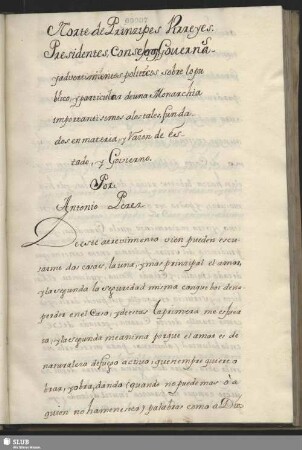 Norte de Principes Virreyes.
Presidentes, Consejos, Governa.s
y advertimientos politicos sobre lo pu
blico, y particular de una Monarchia
importantissimos a los tales, funda,
dos en materia, y Razon de Es,
tado, y Govierno.
Por
Antonio Perez
De este atrevimiento vien pueden escu
sarme dos cosas, la una, y mas principal el amor,
y la segunda la seguridad misma con que los de no
perder en el Caso, y de estas la primera me esfuer
za, y la segunda me anima porque el amor es de
naturaleza de fuego activo, que siempre quiere o
brar, y obra, dando (quando no puede mas ò à
quien no ha menester) palabras como a Dios
SLUB